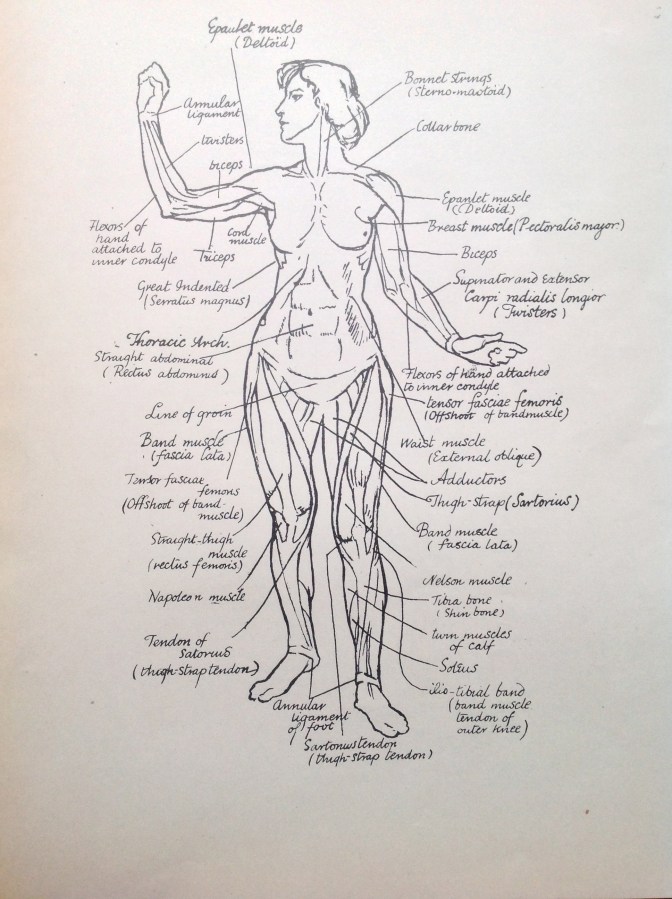 Epaulet muscle
(Deltoid)
Annular
ligament
twisters
biceps
Flexors of
hand
attached to
inner condyle
Cord
muscle
Triceps
Great Indented
(Serratus magnus)
Thoracic Arch.
Straight abdominal
(Rectus abdominus)
Line of groin
Band muscle
(fascia lata)
Tensor fasciae
femoris
(Offshoot of band-
muscle)
Straight-thigh
muscle
(rectus femoris)
Napoleon muscle
Tendon of
satorius
(thigh-strap tendon)
Annular
ligament
of foot
Sartorius tendon
(thigh-strap tendon)
Bonnet strings
(Sterno-mastoid)
Collar bone
Epaulet muscle
(Deltoid)
Breast muscle (Pectoralis major.)
Biceps
Supinator and Extensor
Carpi radialis longior
(Twisters)
Flexors of hand attached
to inner condyle
tensor fasciae femoris
(Offshoot of bandmuscle)
Waist muscle
(External oblique)
Adductors
Thigh-strap (Sartorius)
Band muscle
(fascia lata)
Nelson muscle
Tibia bone
(Shin bone)
twin muscles
of calf
Soleus
ilio-tibial band
(band muscle
tendon of
outer knee)